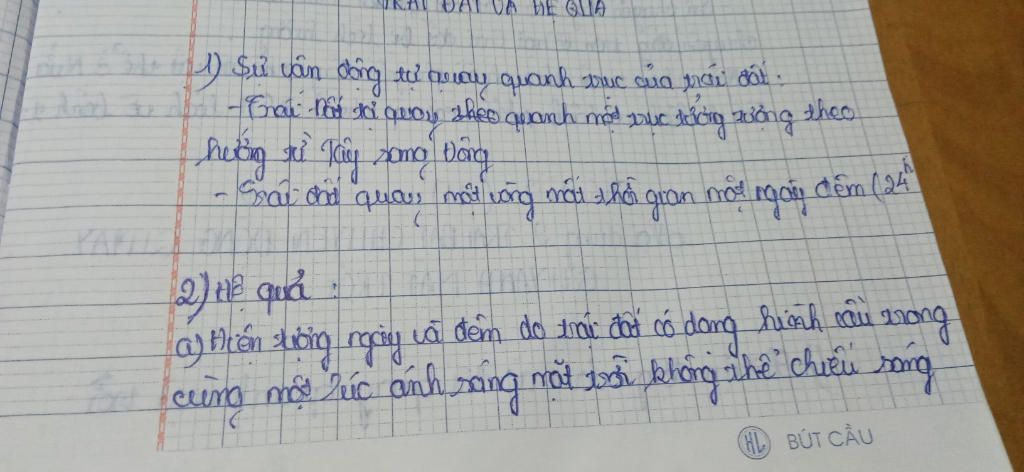 TRÁI ĐẤT VÀ HỆ QUẢ
1) Sự vận động tự quay quanh trục của trái đất.
- Trái đất tự quay theo quanh một trục tưởng tượng theo
hướng từ Tây sang Đông
- Trái đất quay một vòng mất thời gian một ngày đêm (24h
2) Hệ quả :
a) Hiện tượng ngày và đêm do trái đất có dạng hình cầu trong
cùng một lúc ánh sáng mặt trời không thể chiếu sáng
HL BÚT CẦU